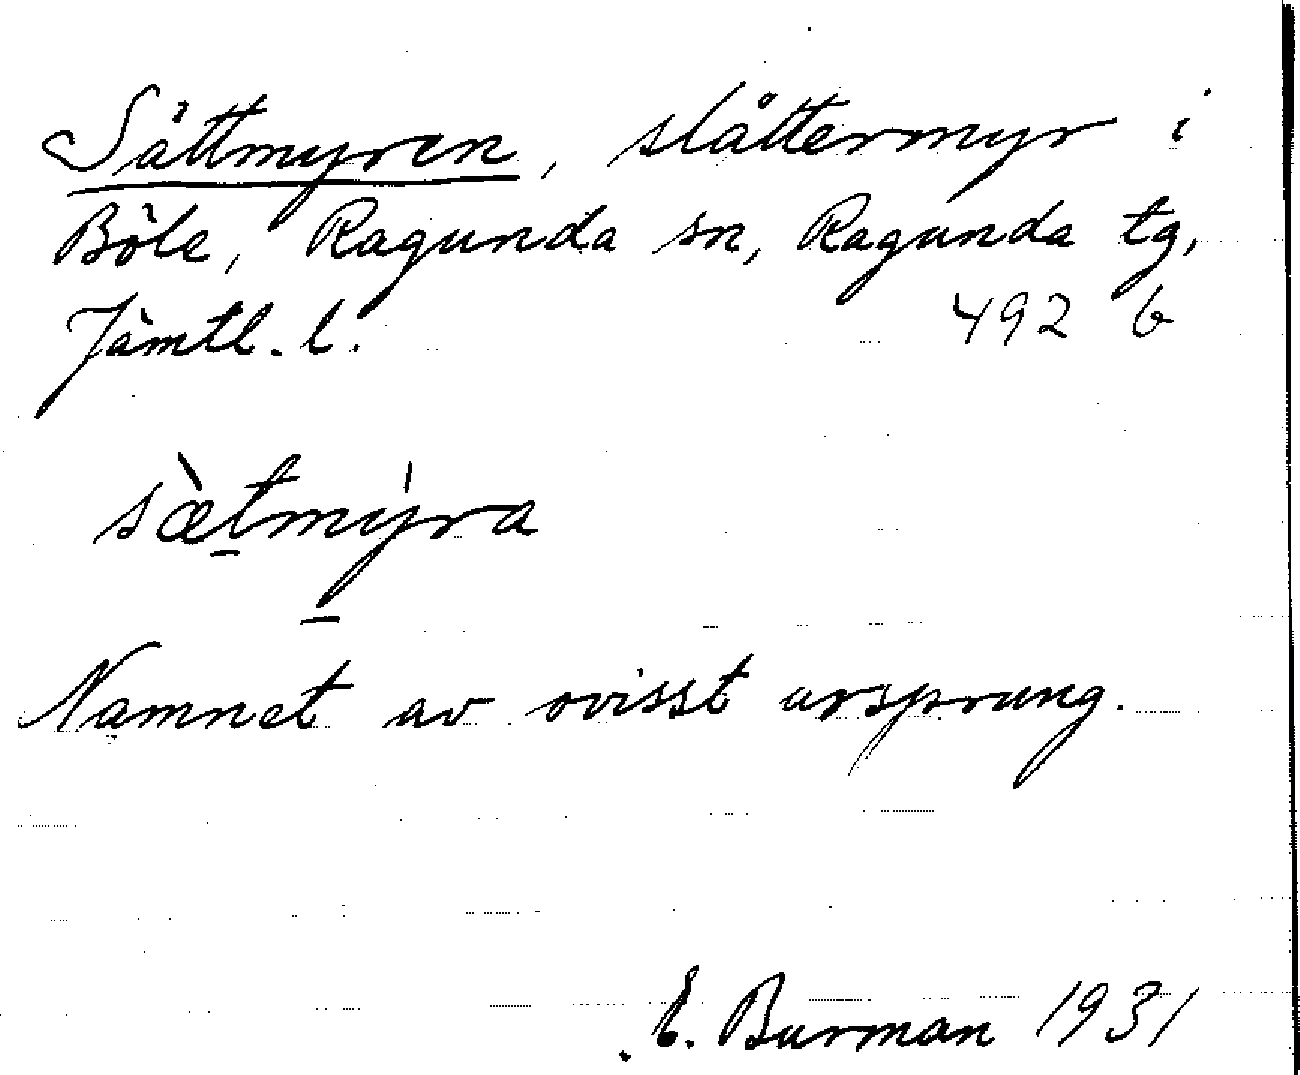 Sättmyren, slåttermyr i
Böle, Ragunda sn, Ragunda tg,
Jämtl. l. 492 b
sæ̀tmýra
Namnet av ovisst ursprung.
E. Burman 1931